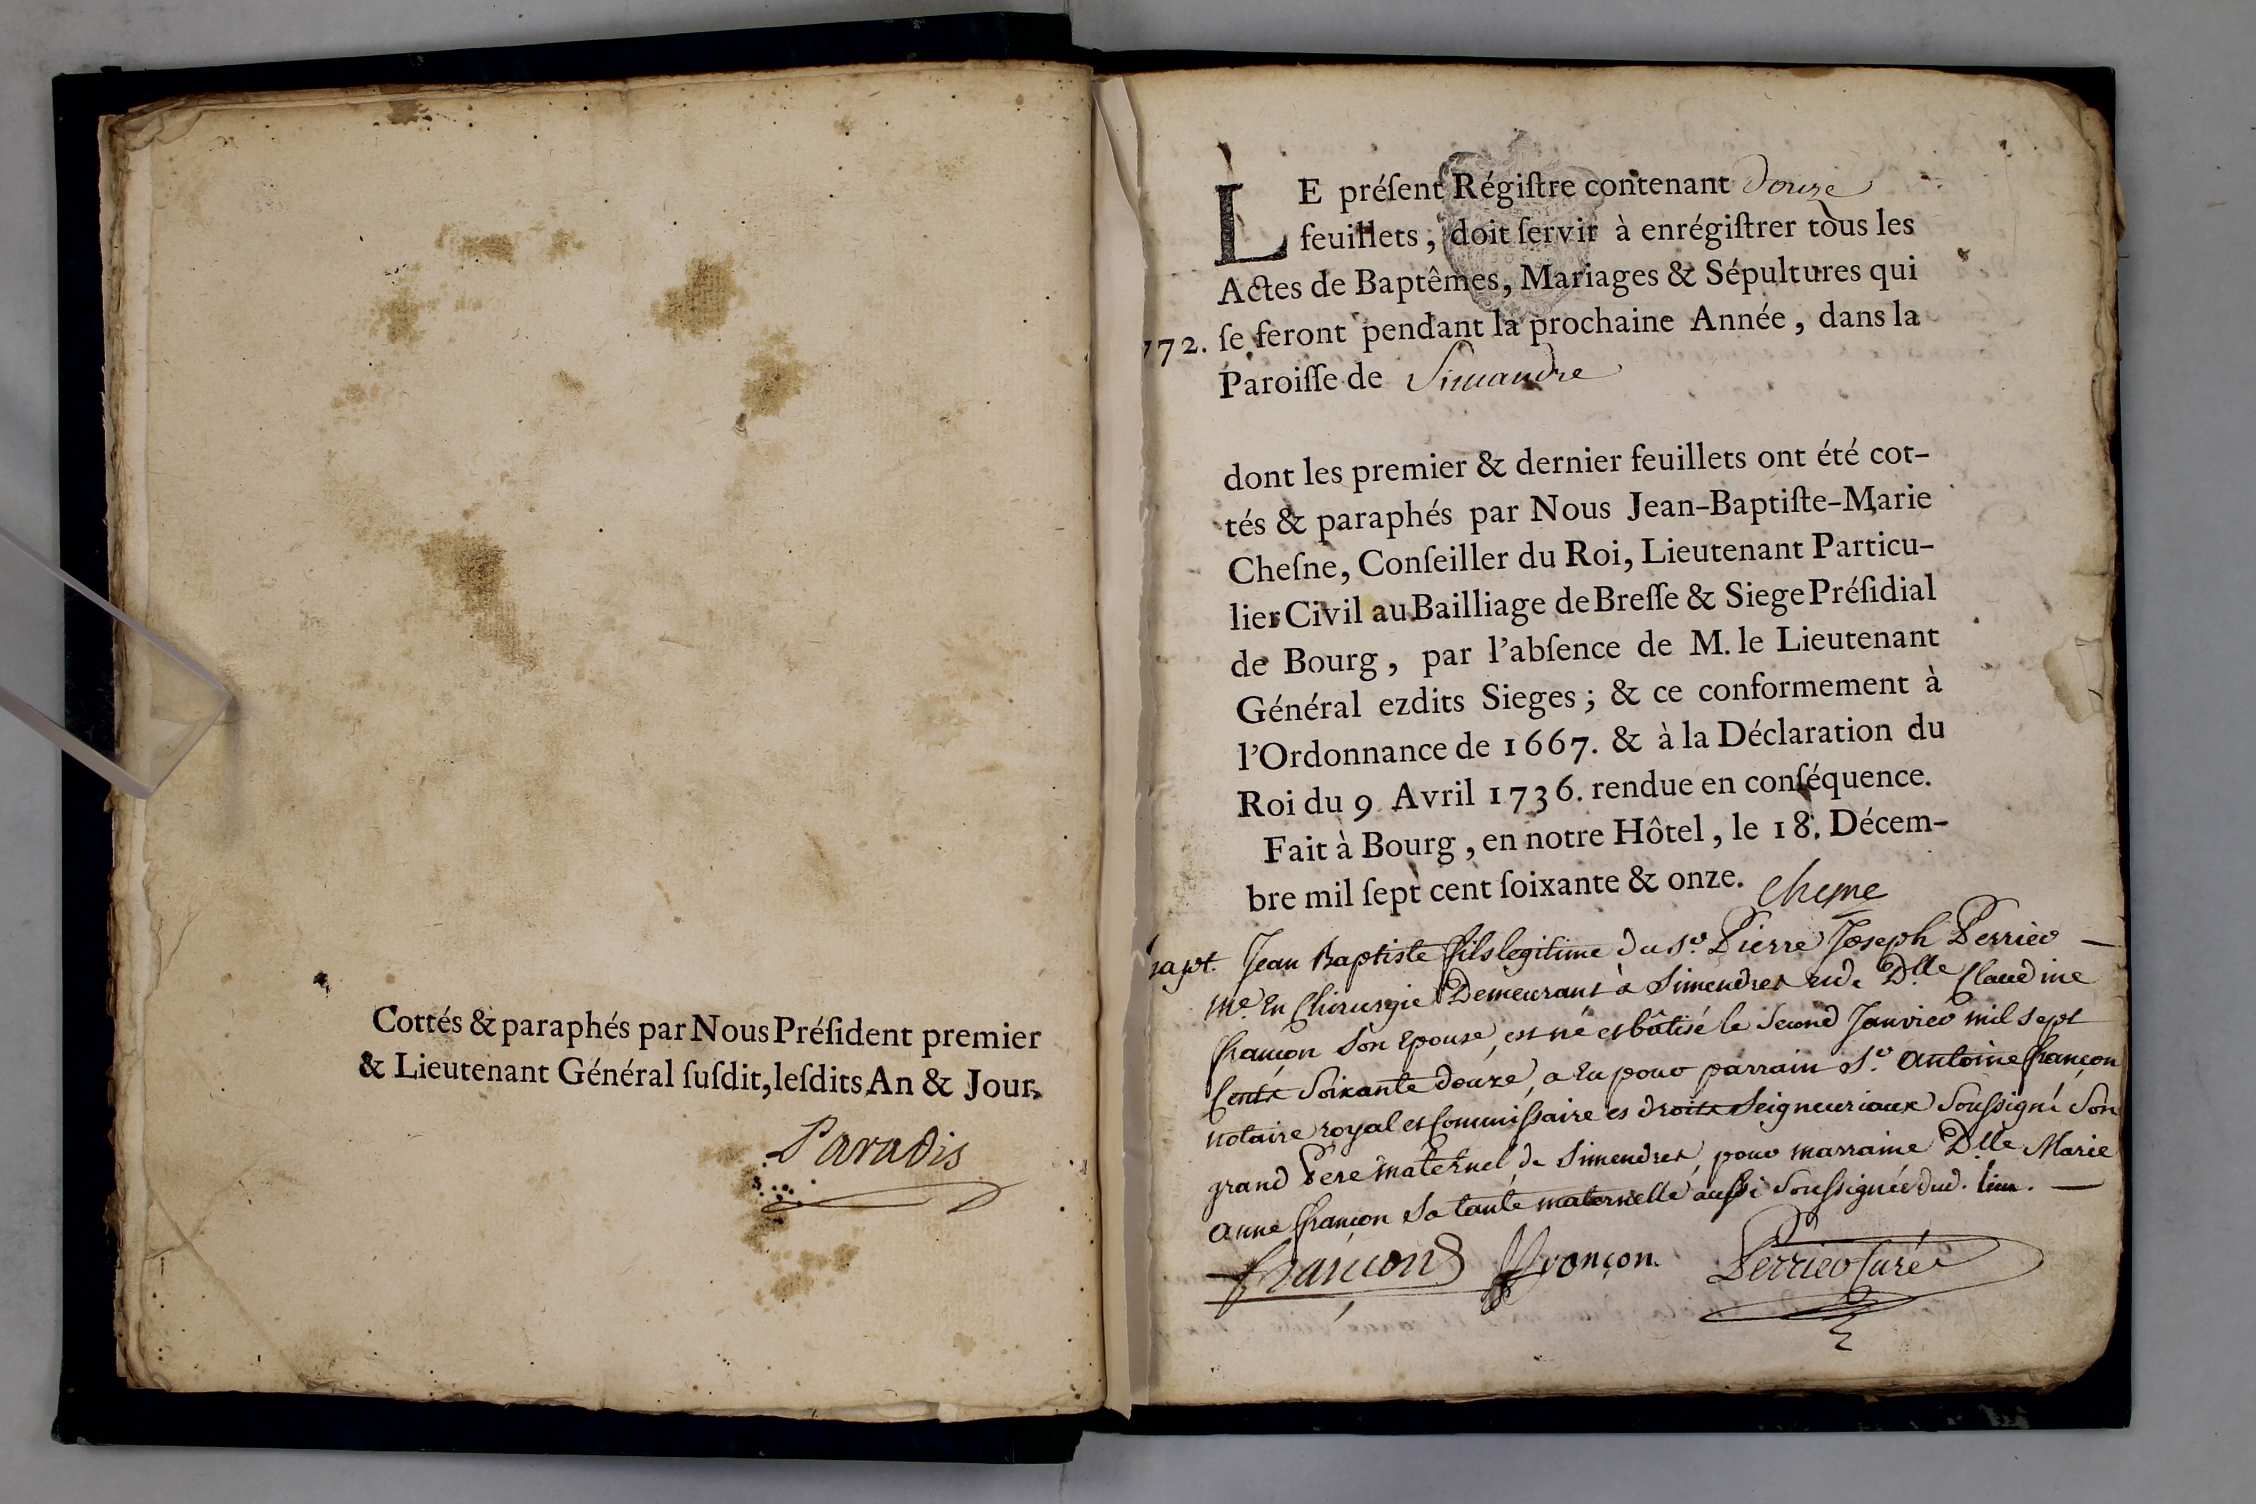 Cottés & paraphés par Nous Préſident premier
& Lieutenant Général ſuſdit, leſdits An & Jour.
Paradis
LE préſent Régiſtre contenant douze
feuillets, doit ſervir à enrégiſtrer tous les
Actes de Baptêmes, Mariages & Sépultures qui
772. ſe feront pendant la prochaine Année, dans la
Paroiſſe de Simandre
dont les premier & dernier feuillets ont été cot-
tés & paraphés par Nous Jean-Baptiſte-Marie
Cheſne, Conſeiller du Roi, Lieutenant Particu-
lier Civil au Bailliage de Breſſe & Siege Préſidial
de Bourg, par l'abſence de M. le Lieutenant
Général ezdits Sieges; & ce conformement à
l'Ordonnance de 1667. & à la Déclaration du
Roi du 9 Avril 1736. rendue en conſéquence.
Fait à Bourg, en notre Hôtel, le 18. Décem-
bre mil ſept cent ſoixante & onze. Chesne
bapt. Jean Baptiste fils legitime du Sr. Pierre Joseph Perrier
me. En Chirurgie Demeurant à Simendres et de Dlle Claudine
françon Son Epouse, est né et bâtisé le Second Janvier mil sept
Cents Soixante douze, a Eu pour parrain Sr. antoine françon
notaire royal et Commissaire es droits Seigneuriaux Soussigné Son
grand Pere maternel de Simendres, pour marraine Dlle Marie
anne françon Sa tante maternelle aussi Soussignée dud. lieu.
françon françon. Perrier Curé